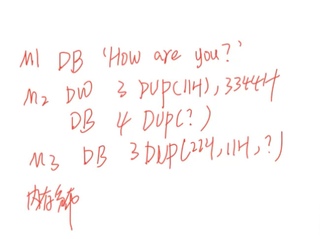 M1 DB 'How are you?'
M2 DW 3 DUP(11H), 3344H
DB 4 DUP(?)
M3 DB 3 DUP(22H, 11H, ?)
内存分布